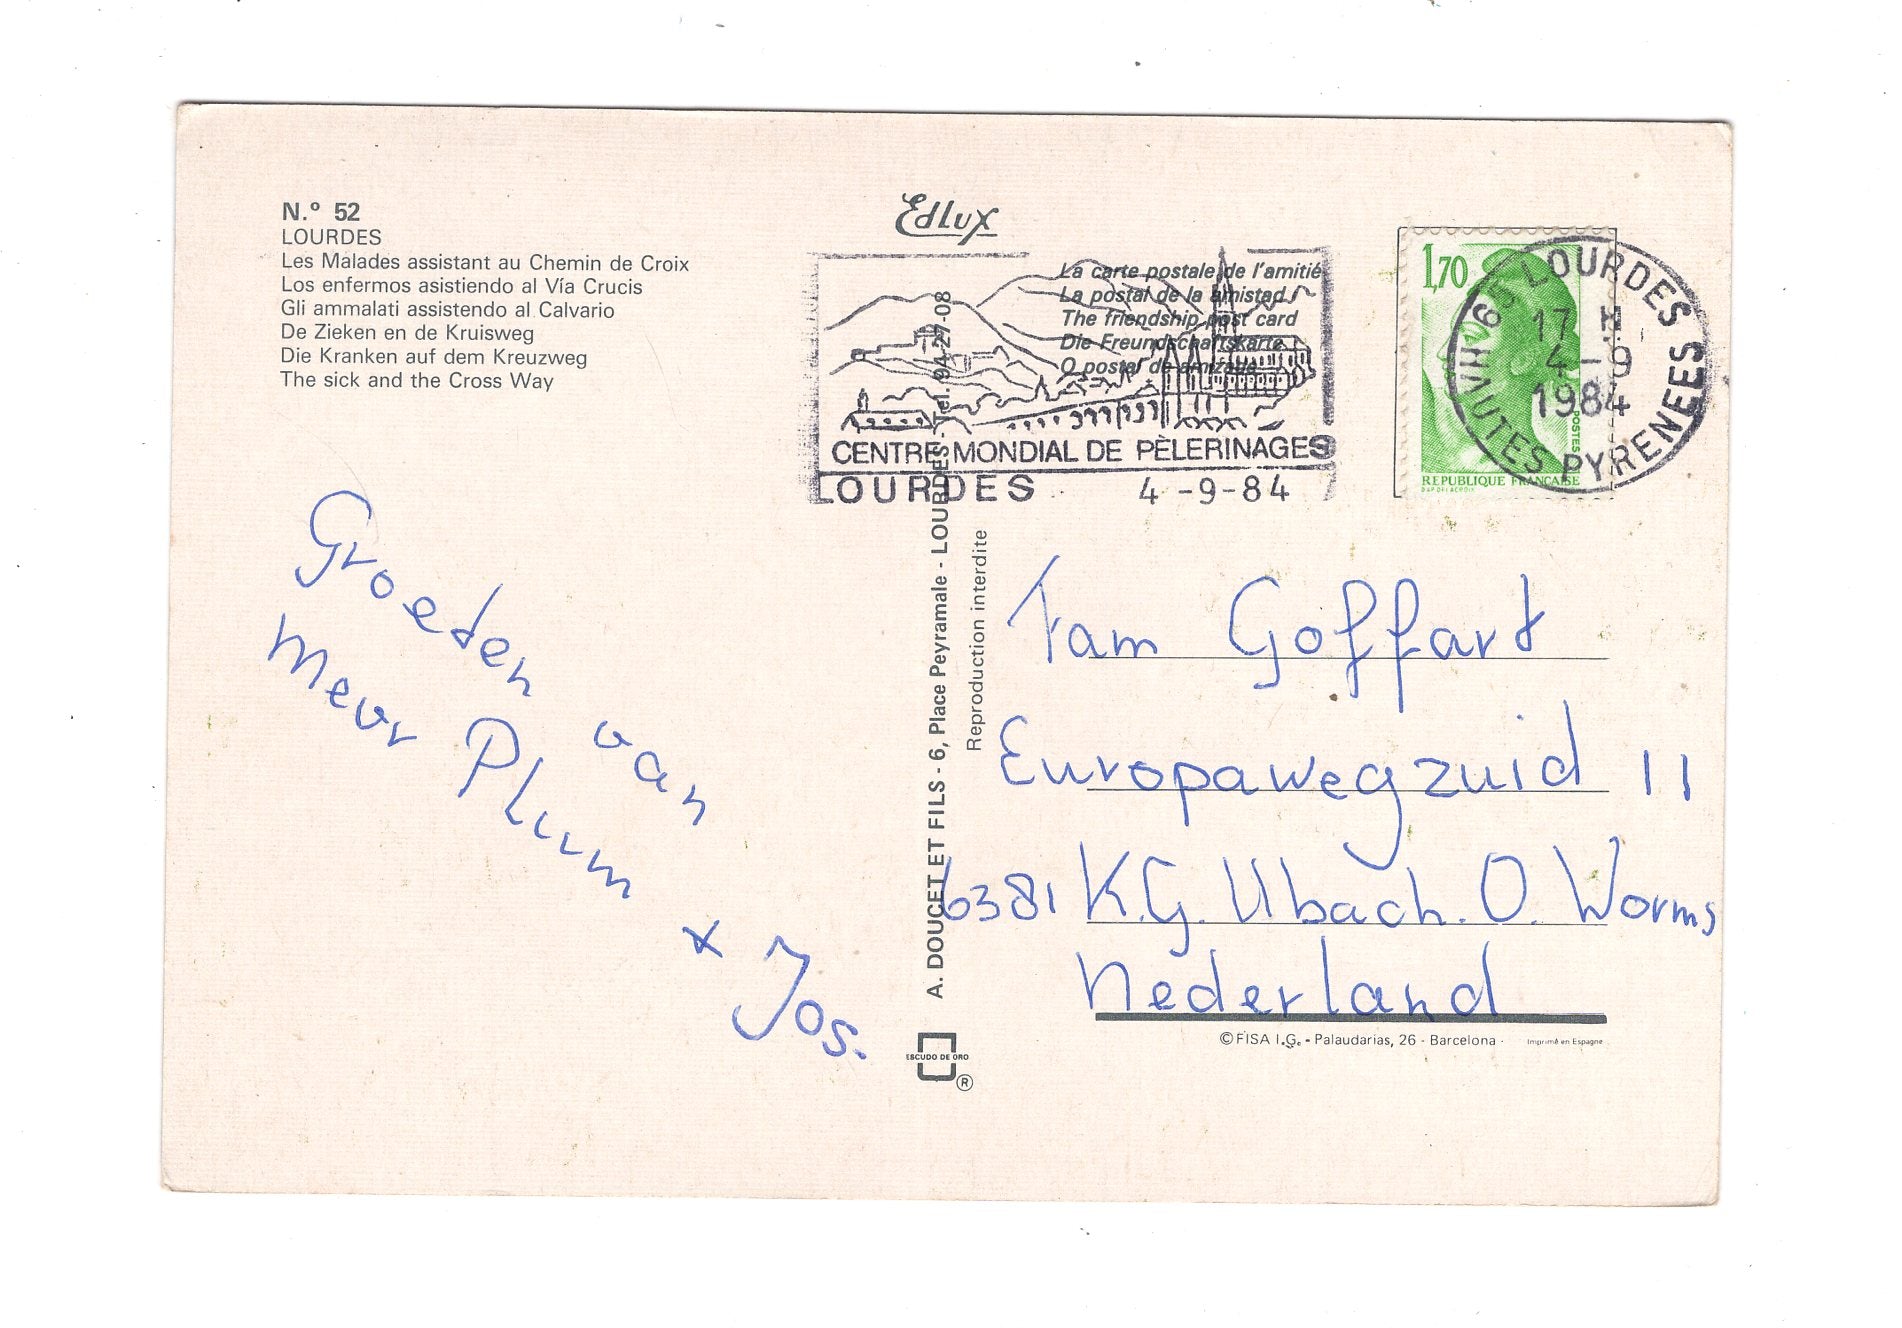 N.º 52
LOURDES
Les Malades assistant au Chemin de Croix
Los enfermos asistiendo al Vía Crucis
Gli ammalati assistendo al Calvario
De Zieken en de Kruisweg
Die Kranken auf dem Kreuzweg
The sick and the Cross Way
Edlux
La carte postale de l'amitié
La postal de la amistad
The friendship post card
Die Freundschaftskarte
O postal de amizade
CENTRE MONDIAL DE PÈLERINAGES
LOURDES 4-9-84
1,70
POSTES
REPUBLIQUE FRANÇAISE
D'AP DELACROIX
65 LOURDES
17 H
4-9
1984
HAUTES PYRENEES
Groeden van
Mevr Plum
+ Jos.
A. DOUCET ET FILS - 6, Place Peyramale - LOURDES - Tel. 94-27-08
Reproduction interdite
Fam Goffart
Europaweg zuid 11
6381 K.G. Ubach. O. Worms
Nederland
ESCUDO DE ORO
®
© FISA I.G. - Palaudarias, 26 - Barcelona - Imprimé en Espagne